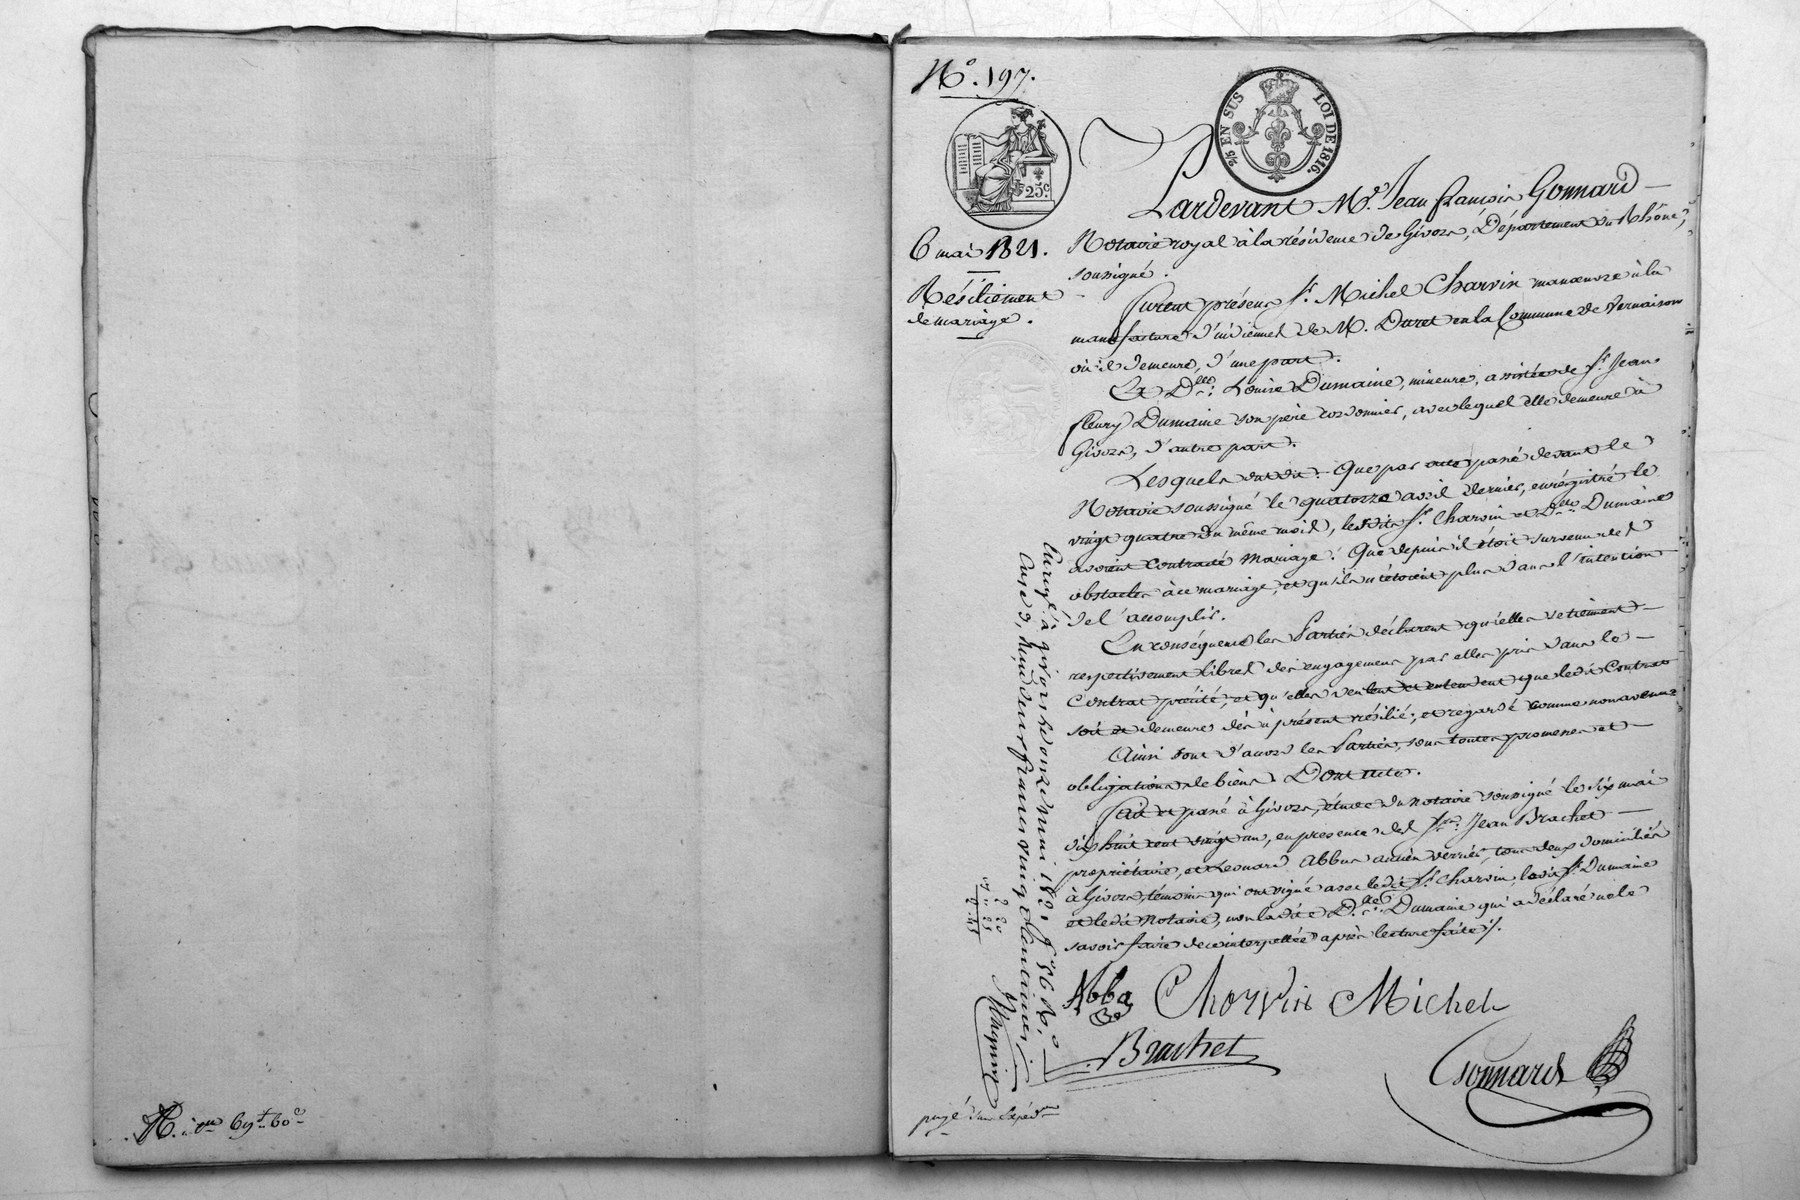 N.º 197.
2/5 EN SUS LOI DE 1816.
25 c.
6 mai 1821.
Résiliement
de mariage.
Pardevant M.e Jean françois Gonnard
Notaire royal à la résidence de Givors, Département du Rhône,
soussigné.
furent présens S.r Michel Charvin manœuvre à la
manufacture d'indiennes de M. Duret en la Commune de Vernaison
où il demeure, d'une part.
Et D.lle Louise Dumaine, mineure, assistée de S.r Jean
fleury Dumaine son père cordonnier, avec lequel elle demeure à
Givors, d'autre part.
Lesquels ont dit: Que par acte passé devant le
Notaire soussigné le quatorze avril dernier, enrégistré le
vingt quatre du même mois, lesdits S.r Charvin et D.lle Dumaine
avoient contracté Mariage. Que depuis il étoit survenu des
obstacles à ce mariage, et qu'ils n'étoient plus dans l'intention
de l'accomplir.
En conséquence les Parties déclarent qu'elles se tiennent
respectivement libres des engagemens par elles pris dans le
Contrat précité, et qu'elles veulent et entendent que ledit Contrat
soit et demeure dès à présent résilié, et regardé comme non avenu
Ainsi sont d'accord les Parties, sous toutes promesses et
obligations de biens. Dont acte.
fait et passé à Givors, étude du notaire soussigné le six mai
dix huit cent vingt un, en présence des S.rs Jean Brachet
propriétaire, et Léonard Abba ancien verrier, tous deux domiciliés
à Givors, témoins qui ont signé avec ledit S.r Charvin, ledit S.r Dumaine
et ledit Notaire, non ladite D.lle Dumaine qui a déclaré ne le
savoir faire de ce interpellée après lecture faite ./.
Abba Chorvin Michel
Brachet
Gonnard
Enregé à givors le onze mai 1821 f.º 56 R.º
Reçu deux francs vingt centimes
2 20
22
2 45
payé
R. 69 60 c